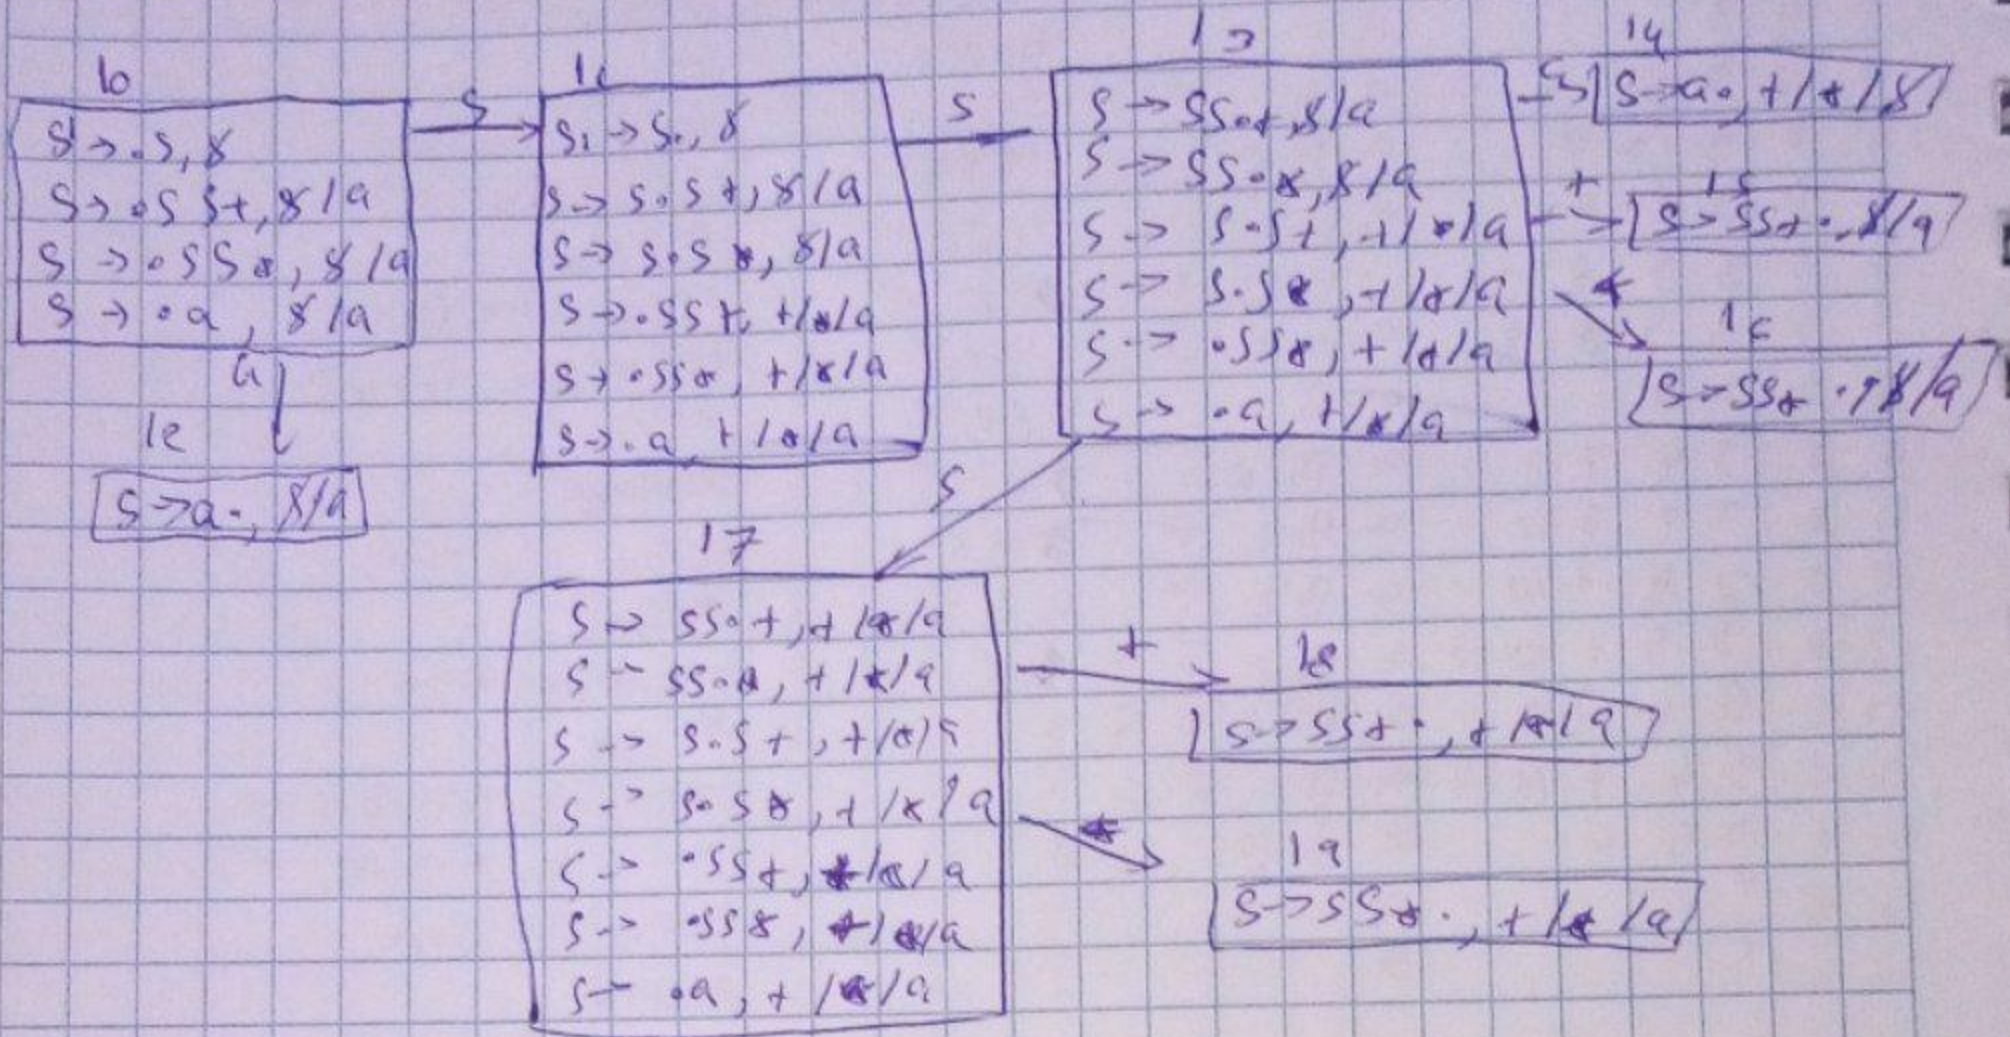 I0
S' → .S, $
S → .SS+, $/a
S → .SS*, $/a
S → .a, $/a
S
I1
S1 → S., $
S → S.S+, $/a
S → S.S*, $/a
S → .SS+, +/*/a
S → .SS*, +/*/a
S → .a, +/*/a
S
I3
S → SS.+, $/a
S → SS.*, $/a
S → S.S+, +/*/a
S → S.S*, +/*/a
S → .SS*, +/*/a
S → .a, +/*/a
I4
S → a., +/*/$
+
I5
S → SS+., $/a
*
I6
S → SS*., $/a
a
I2
S → a., $/a
S
I7
S → SS.+, +/*/a
S → SS.*, +/*/a
S → S.S+, +/*/a
S → S.S*, +/*/a
S → .SS+, +/*/a
S → .SS*, +/*/a
S → .a, +/*/a
+
I8
S → SS+., +/*/a
*
I9
S → SS*., +/*/a